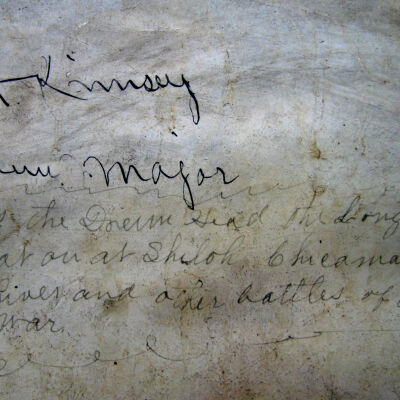 Kinnsey
Major
the Drum used the Long
at on at Shiloh Chicama
River and other battles of
War.